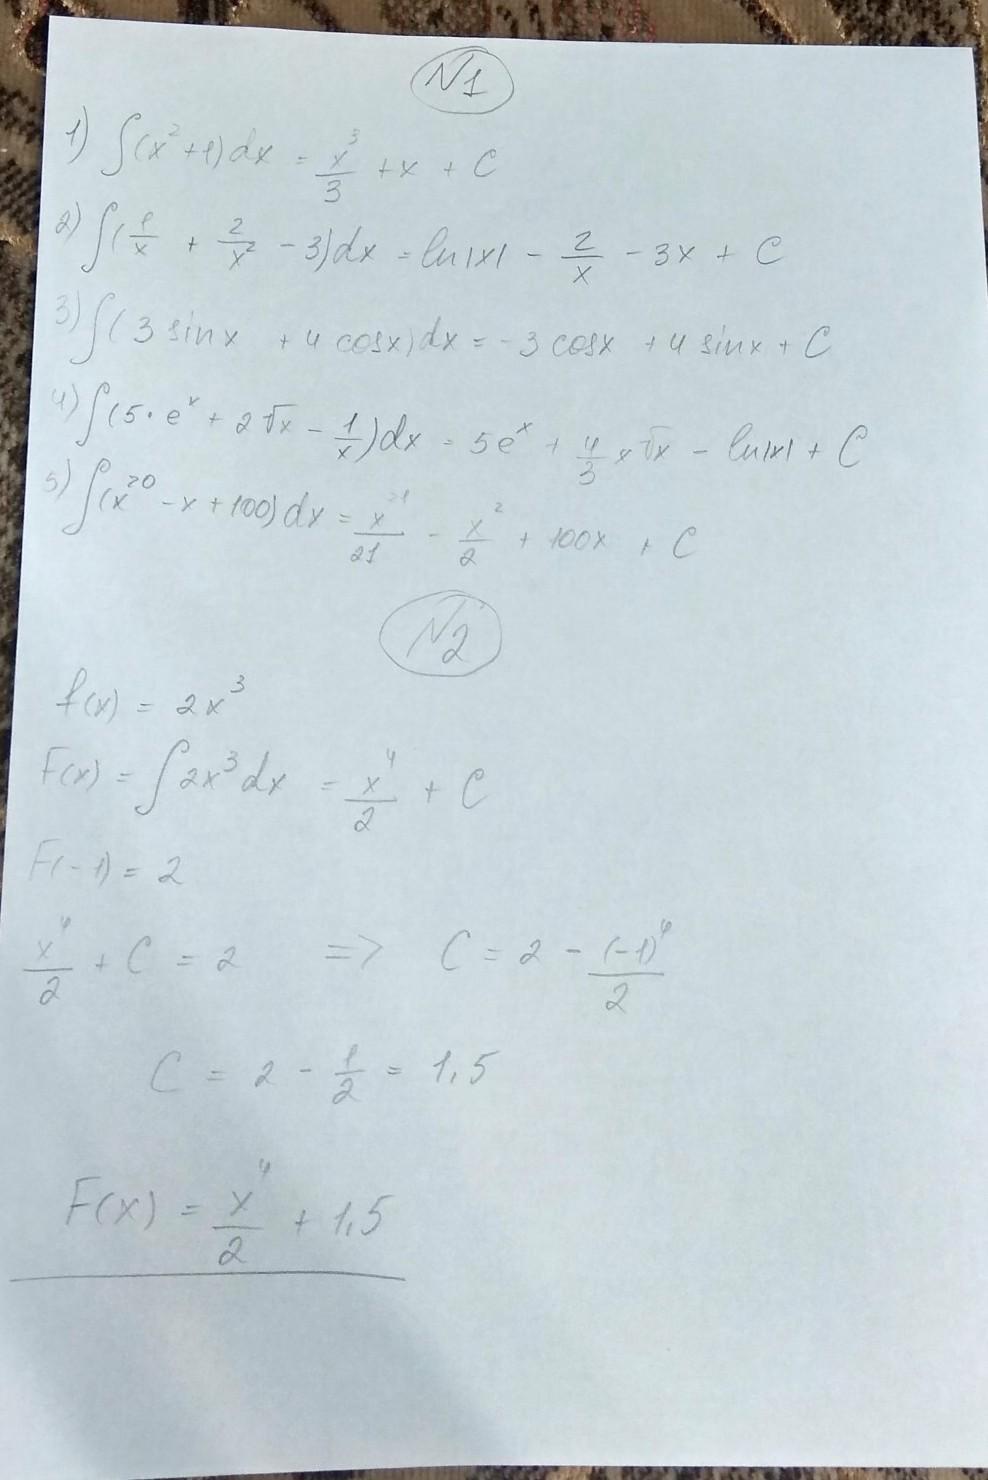 N1
1) ∫(x²+1)dx = x³/3 + x + C
2) ∫(1/x + 2/x² - 3)dx = ln|x| - 2/x - 3x + C
3) ∫(3 sinx + 4 cosx)dx = -3 cosx + 4 sinx + C
4) ∫(5·eˣ + 2√x - 1/x)dx = 5eˣ + 4/3 x√x - ln|x| + C
5) ∫(x²⁰ - x + 100)dx = x²¹/21 - x²/2 + 100x + C
N2
f(x) = 2x³
F(x) = ∫2x³dx = x⁴/2 + C
F(-1) = 2
x⁴/2 + C = 2 => C = 2 - (-1)⁴/2
C = 2 - 1/2 = 1,5
F(x) = x⁴/2 + 1,5